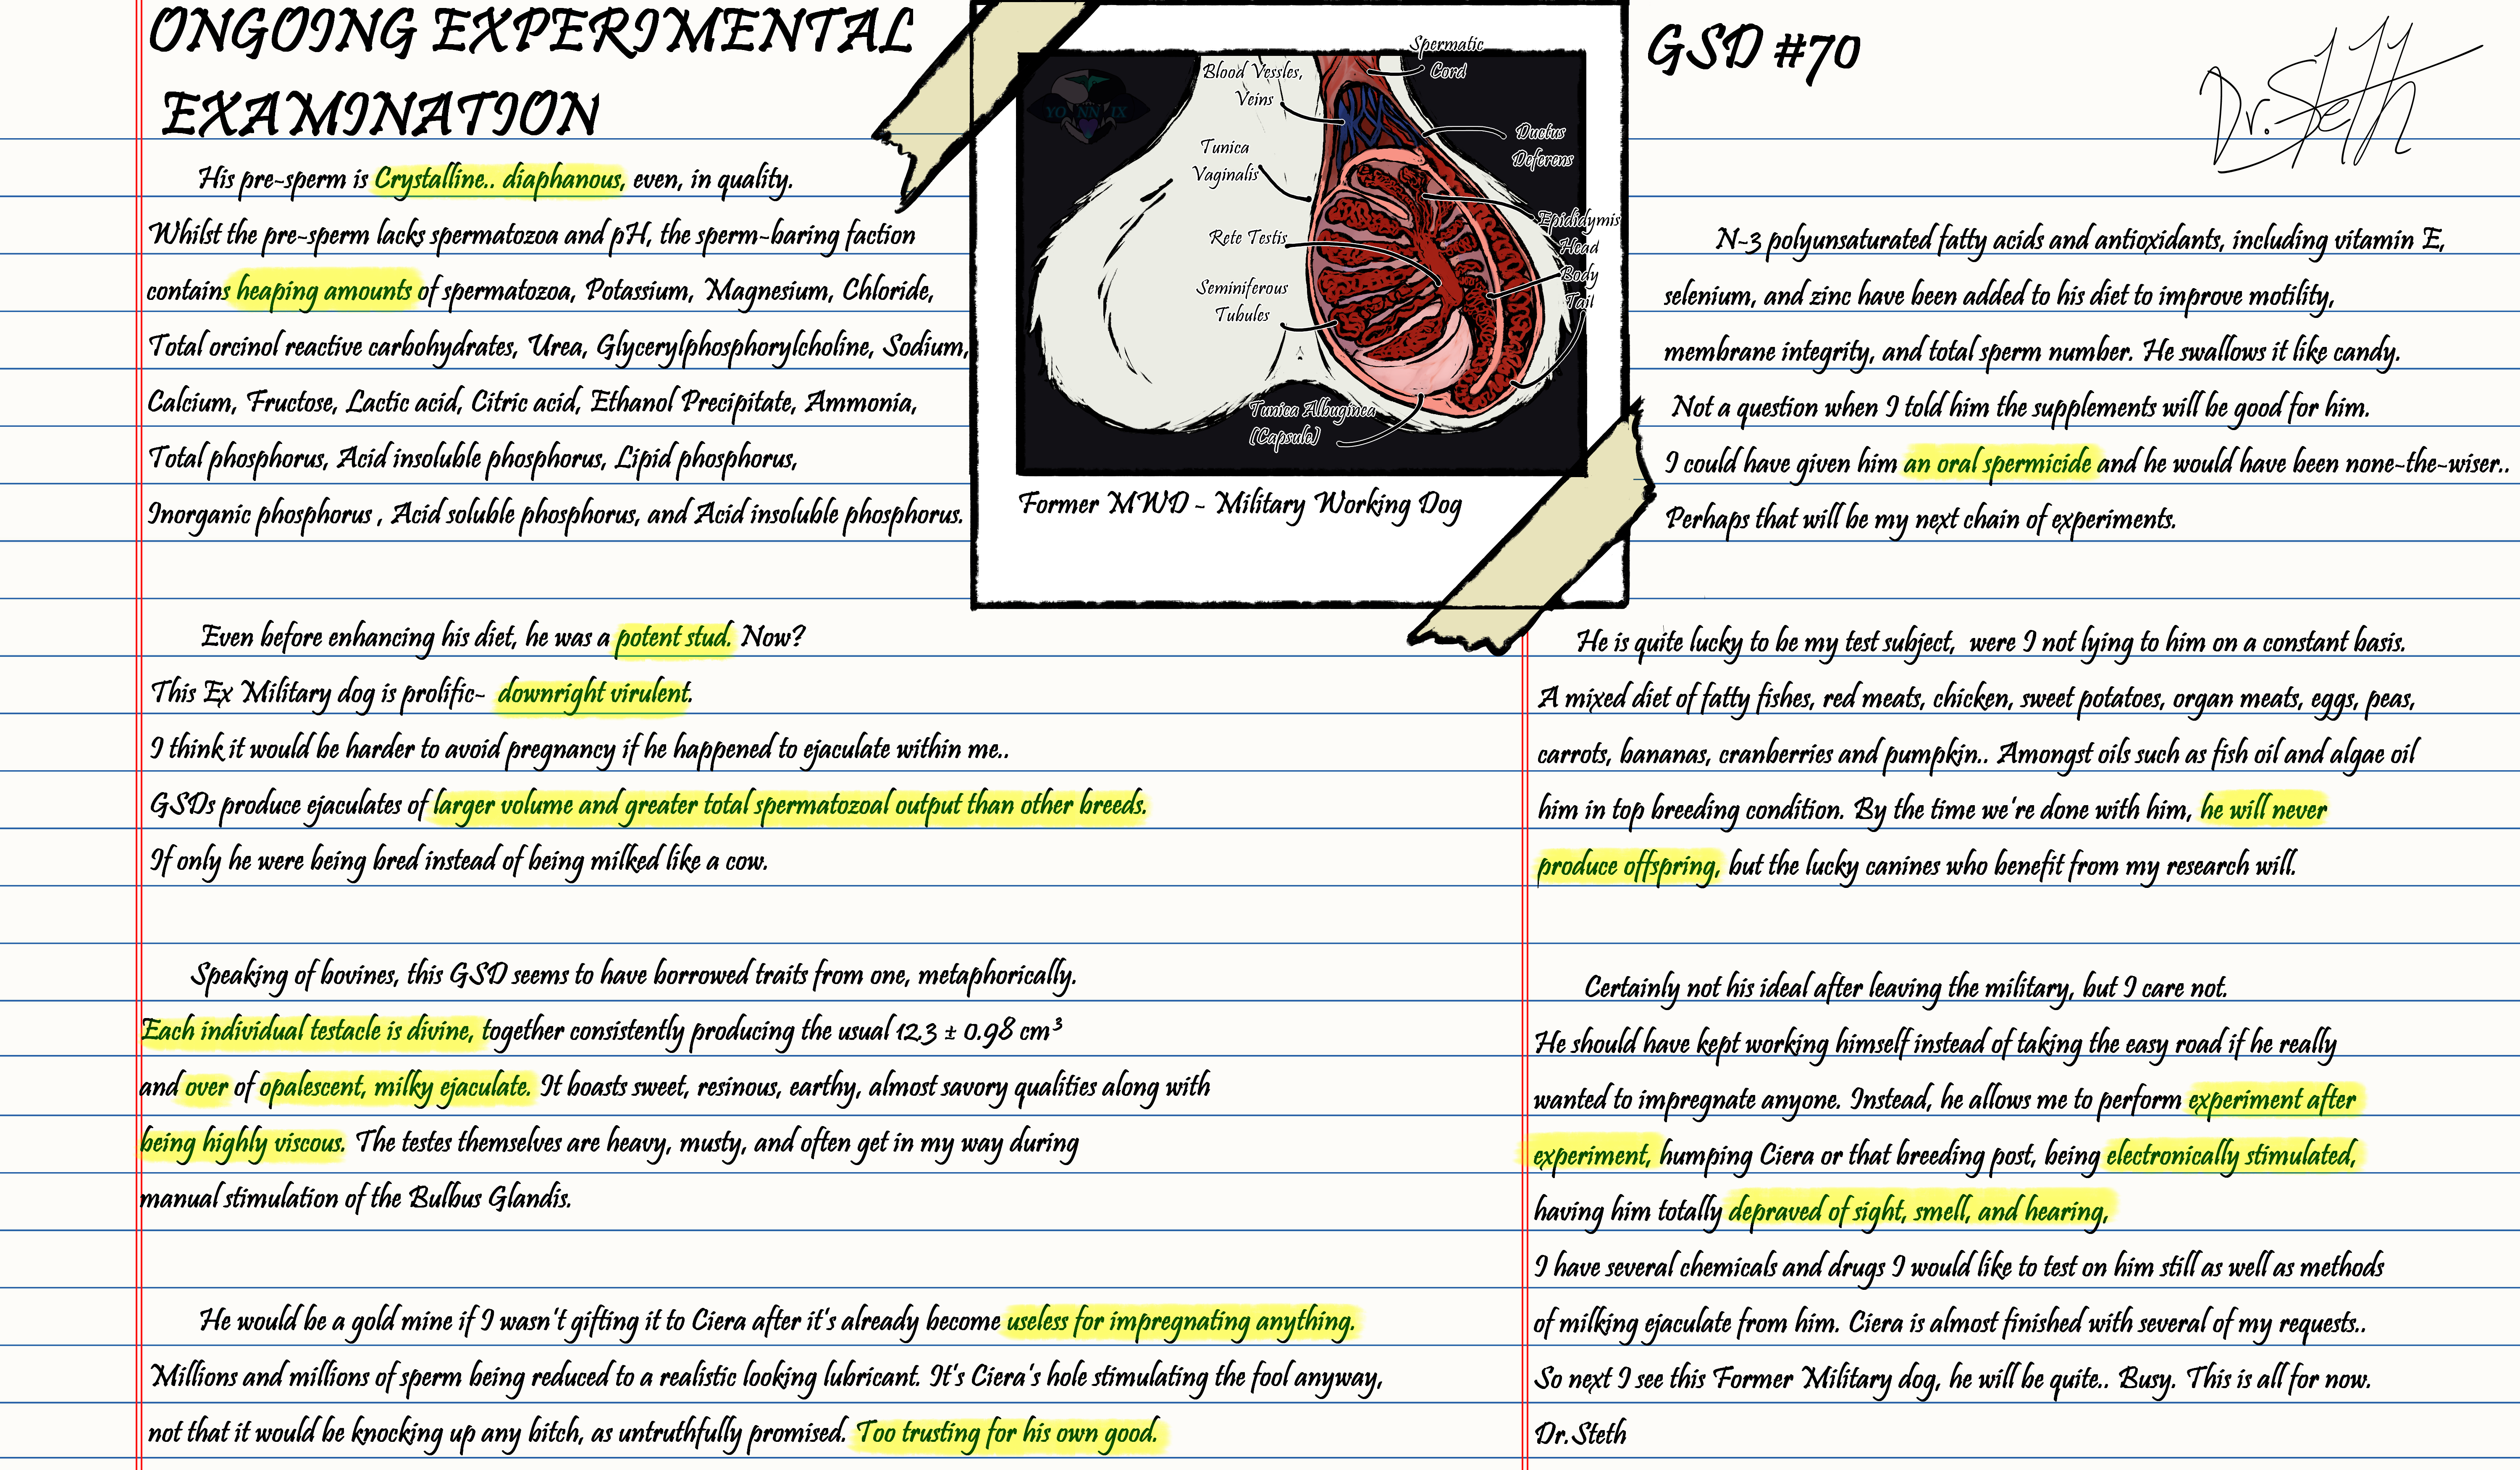 ONGOING EXPERIMENTAL
EXAMINATION
His pre-sperm is Crystalline.. diaphanous, even, in quality.
Whilst the pre-sperm lacks spermatozoa and pH, the sperm-baring faction
contains heaping amounts of spermatozoa, Potassium, Magnesium, Chloride,
Total orcinol reactive carbohydrates, Urea, Glycerylphosphorylcholine, Sodium,
Calcium, Fructose, Lactic acid, Citric acid, Ethanol Precipitate, Ammonia,
Total phosphorus, Acid insoluble phosphorus, Lipid phosphorus,
Inorganic phosphorus , Acid soluble phosphorus, and Acid insoluble phosphorus.
Even before enhancing his diet, he was a potent stud. Now?
This Ex Military dog is prolific- downright virulent.
I think it would be harder to avoid pregnancy if he happened to ejaculate within me..
GSDs produce ejaculates of larger volume and greater total spermatozoal output than other breeds.
If only he were being bred instead of being milked like a cow.
Speaking of bovines, this GSD seems to have borrowed traits from one, metaphorically.
Each individual testacle is divine, together consistently producing the usual 12.3 ± 0.98 cm³
and over of opalescent, milky ejaculate. It boasts sweet, resinous, earthy, almost savory qualities along with
being highly viscous. The testes themselves are heavy, musty, and often get in my way during
manual stimulation of the Bulbus Glandis.
He would be a gold mine if I wasn't gifting it to Ciera after it's already become useless for impregnating anything.
Millions and millions of sperm being reduced to a realistic looking lubricant. It's Ciera's hole stimulating the fool anyway,
not that it would be knocking up any bitch, as untruthfully promised. Too trusting for his own good.
YO NN IX
Spermatic
Cord
Blood Vessles,
Veins
Ductus
Deferens
Tunica
Vaginalis
Epididymis
Head
Body
Tail
Rete Testis
Seminiferous
Tubules
Tunica Albuginea
(Capsule)
Former MWD - Military Working Dog
GSD #70
Dr. Steth
N-3 polyunsaturated fatty acids and antioxidants, including vitamin E,
selenium, and zinc have been added to his diet to improve motility,
membrane integrity, and total sperm number. He swallows it like candy.
Not a question when I told him the supplements will be good for him.
I could have given him an oral spermicide and he would have been none-the-wiser..
Perhaps that will be my next chain of experiments.
He is quite lucky to be my test subject, were I not lying to him on a constant basis.
A mixed diet of fatty fishes, red meats, chicken, sweet potatoes, organ meats, eggs, peas,
carrots, bananas, cranberries and pumpkin.. Amongst oils such as fish oil and algae oil
him in top breeding condition. By the time we're done with him, he will never
produce offspring, but the lucky canines who benefit from my research will.
Certainly not his ideal after leaving the military, but I care not.
He should have kept working himself instead of taking the easy road if he really
wanted to impregnate anyone. Instead, he allows me to perform experiment after
experiment, humping Ciera or that breeding post, being electronically stimulated,
having him totally depraved of sight, smell, and hearing,
I have several chemicals and drugs I would like to test on him still as well as methods
of milking ejaculate from him. Ciera is almost finished with several of my requests..
So next I see this Former Military dog, he will be quite.. Busy. This is all for now.
Dr. Steth